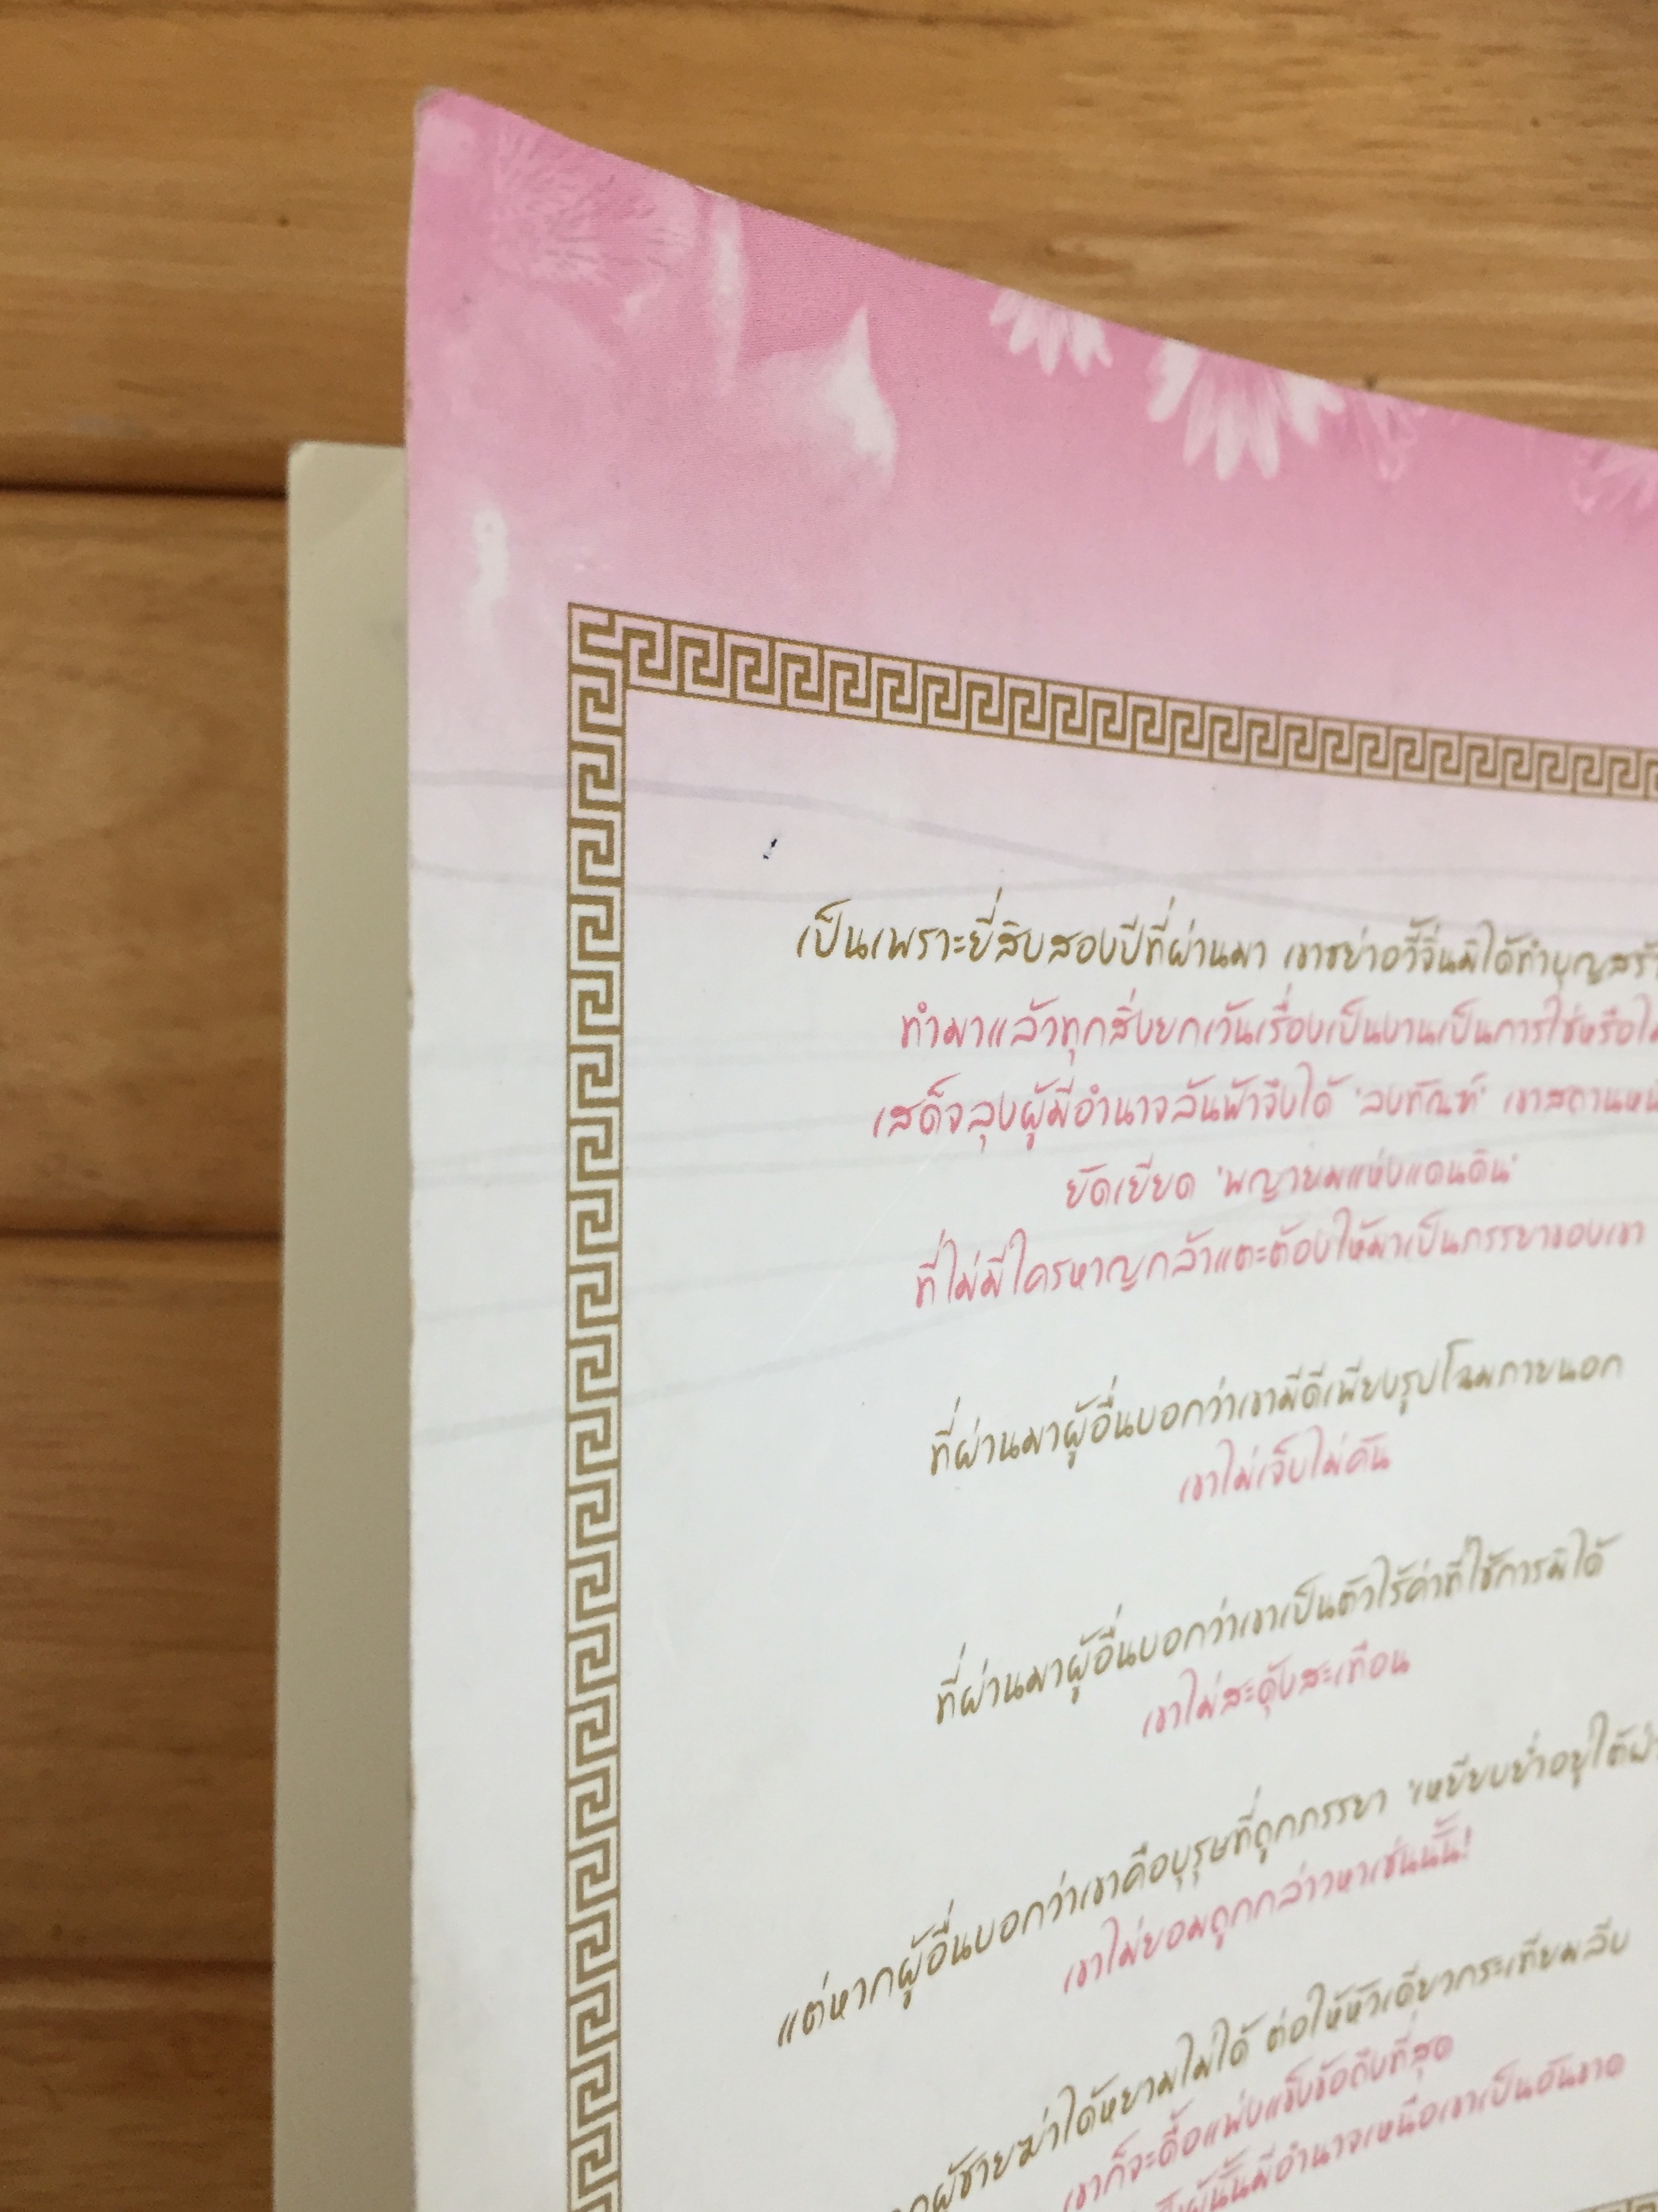 เป็นเพราะยี่สิบสองปีที่ผ่านมา เขาซย่าอวี้จิ่นมิได้ทำบุญสร้
ทำมาแล้วทุกสิ่งยกเว้นเรื่องเป็นงานเป็นการใช่หรือไม่
เสด็จลุงผู้มีอำนาจล้นฟ้าจึงได้ 'ลงทัณฑ์' เขาสถานหนั
ยัดเยียด 'พญายมแห่งแดนดิน'
ที่ไม่มีใครหาญกล้าแตะต้องให้มาเป็นภรรยาของเขา
ที่ผ่านมาผู้อื่นบอกว่าเขามีดีเพียงรูปโฉมภายนอก
เขาไม่เจ็บไม่คัน
ที่ผ่านมาผู้อื่นบอกว่าเขาเป็นตัวไร้ค่าที่ใช้การมิได้
เขาไม่สะดุ้งสะเทือน
แต่หากผู้อื่นบอกว่าเขาคือบุรุษที่ถูกภรรยา 'เหยียบย่ำอยู่ใต้ฝ่า
เขาไม่ยอมถูกกล่าวหาเช่นนั้น!
ผู้ชายฆ่าได้หยามไม่ได้ ต่อให้หัวเดียวกระเทียมลีบ
เขาก็จะดื้อแพ่งแข็งข้อถึงที่สุด
ผู้นั้นมีอำนาจเหนือเขาเป็นอันขาด